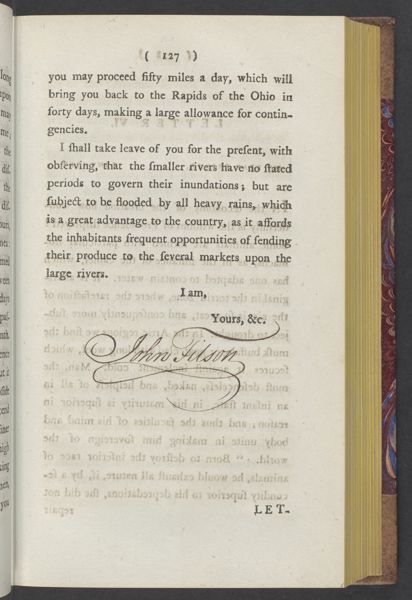 ( 127 )
you may proceed fifty miles a day, which will
bring you back to the Rapids of the Ohio in
forty days, making a large allowance for contin-
gencies.
I ſhall take leave of you for the preſent, with
obſerving, that the ſmaller rivers have no ſtated
periods to govern their inundations; but are
ſubject to be flooded by all heavy rains, which
is a great advantage to the country, as it affords
the inhabitants frequent opportunities of ſending
their produce to the ſeveral markets upon the
large rivers.
I am,
Yours, &c.
John Filson
LET-